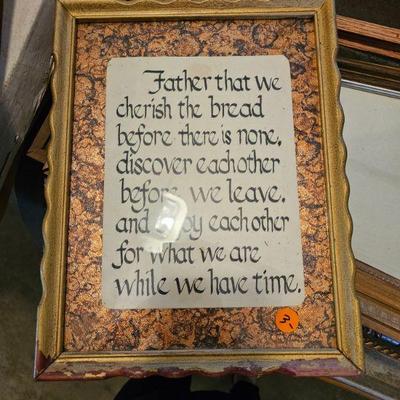 Father that we
cherish the bread
before there is none,
discover eachother
before we leave,
and enjoy eachother
for what we are
while we have time.
3-